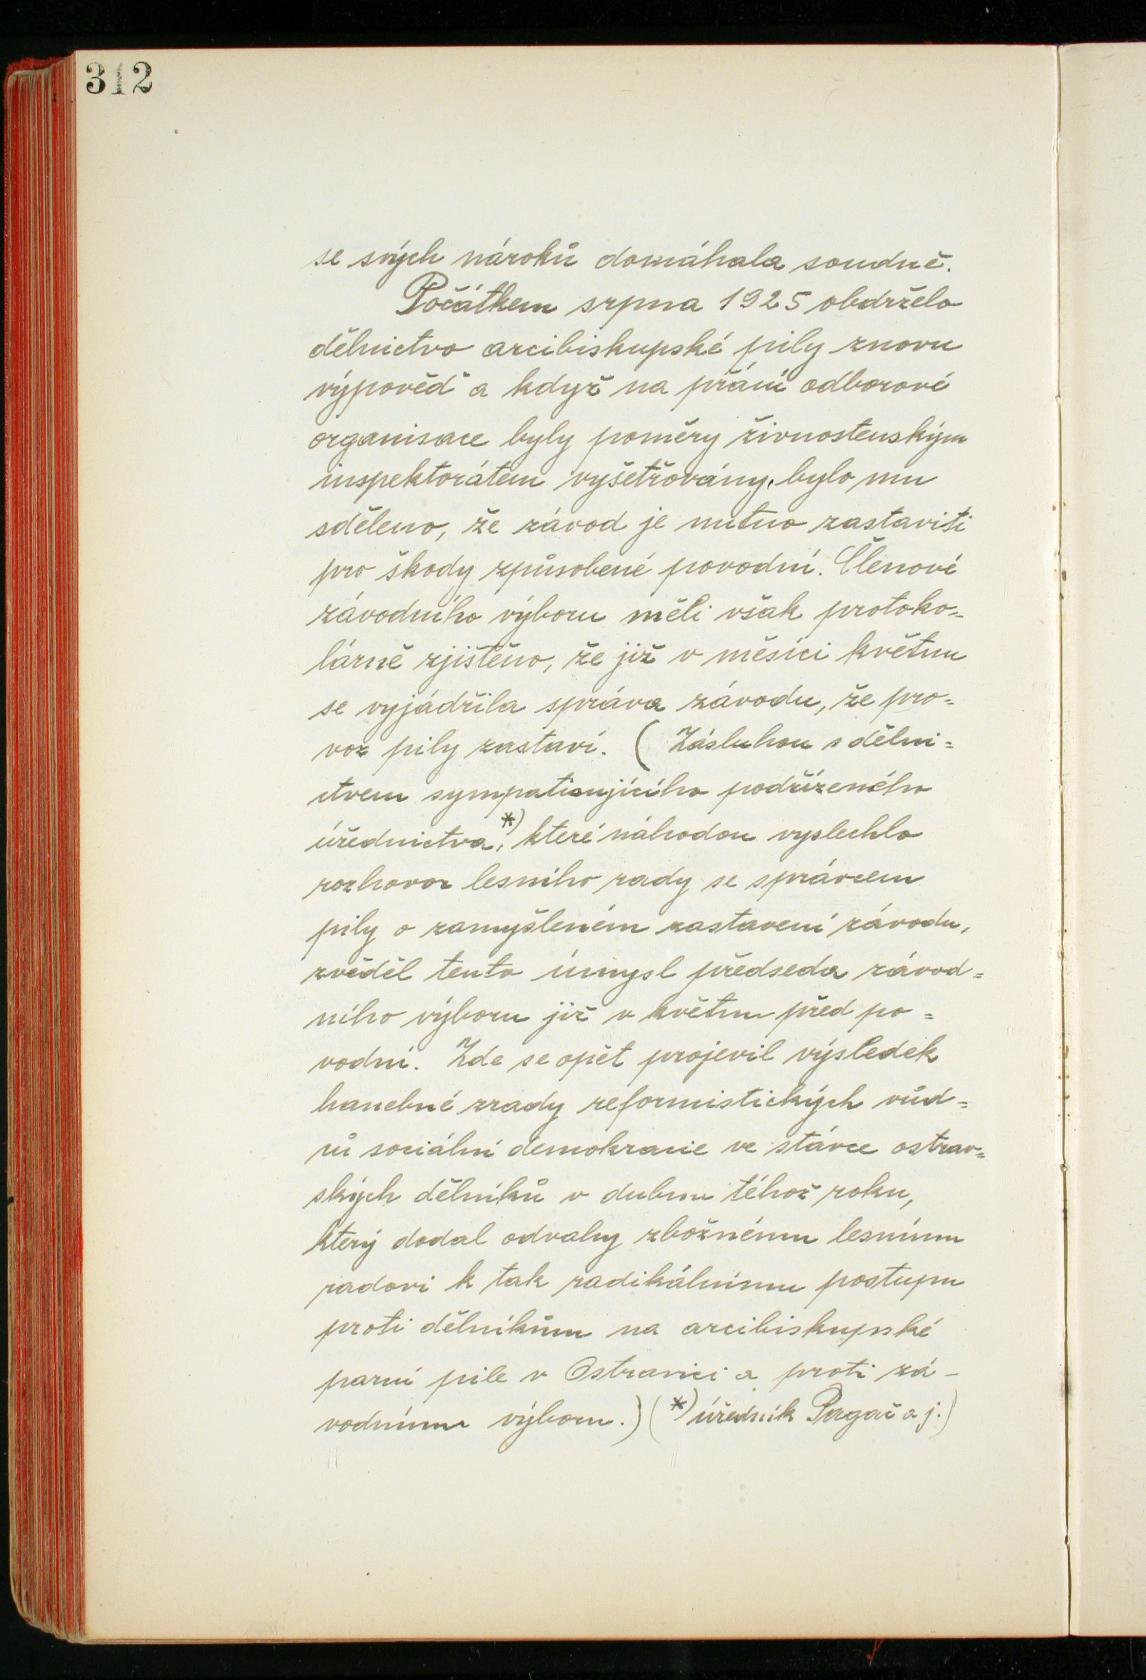 312
se svých nároků domáhala soudně.
Počátkem srpna 1925 obdrželo
dělnictvo arcibiskupské pily znovu
výpověď a když na přání odborové
organisace byly poměry živnostenským
inspektorátem vyšetřovány, bylo mu
sděleno, že závod je nutno zastaviti
pro škody způsobené povodní. Členové
závodního výboru měli však protoko=
lárně zjištěno, že již v měsíci květnu
se vyjádřila správa závodu, že pro=
voz pily zastaví. (Zásluhou s dělni=
ctvem sympatisujícího podřízeného
úřednictva,*) které náhodou vyslechlo
rozhovor lesního rady se správcem
pily o zamyšleném zastavení závodu,
zvěděl tento úmysl předseda závod=
ního výboru již v květnu před po=
vodní. Zde se opět projevil výsledek
hanebné zrady reformistických vůd=
ců sociální demokracie ve stávce ostrav=
ských dělníků v dubnu téhož roku,
který dodal odvahy zbožnému lesnímu
radovi k tak radikálnímu postupu
proti dělníkům na arcibiskupské
parní pile v Ostravici a proti zá-
vodnímu výboru.) (*) úředník Pagač a j.)